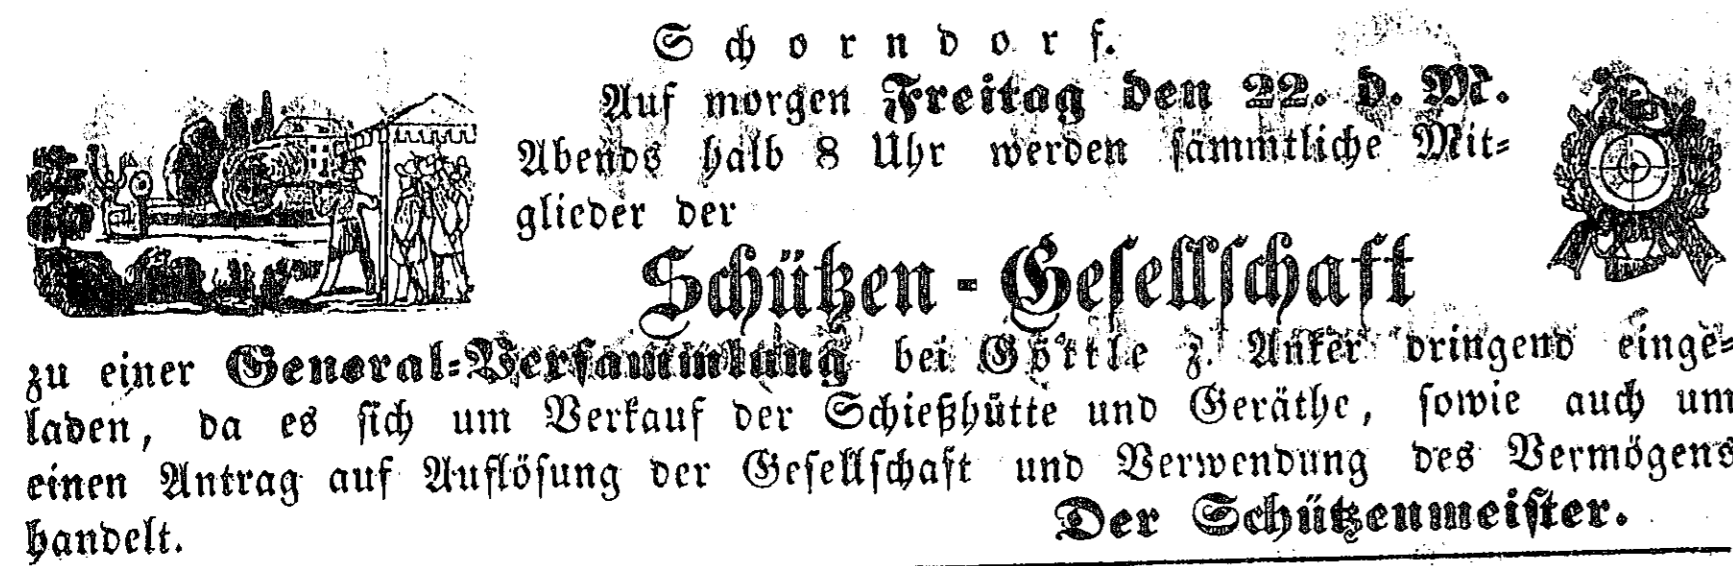 Schorndorf.
Auf morgen Freitag den 22. d. M.
Abends halb 8 Uhr werden sämmtliche Mit-
glieder der
Schützen-Gesellschaft
zu einer General-Versammlung bei Göttle z. Anker dringend einge-
laden, da es sich um Verkauf der Schießhütte und Geräthe, sowie auch um
einen Antrag auf Auflösung der Gesellschaft und Verwendung des Vermögens
handelt.
Der Schützenmeister.